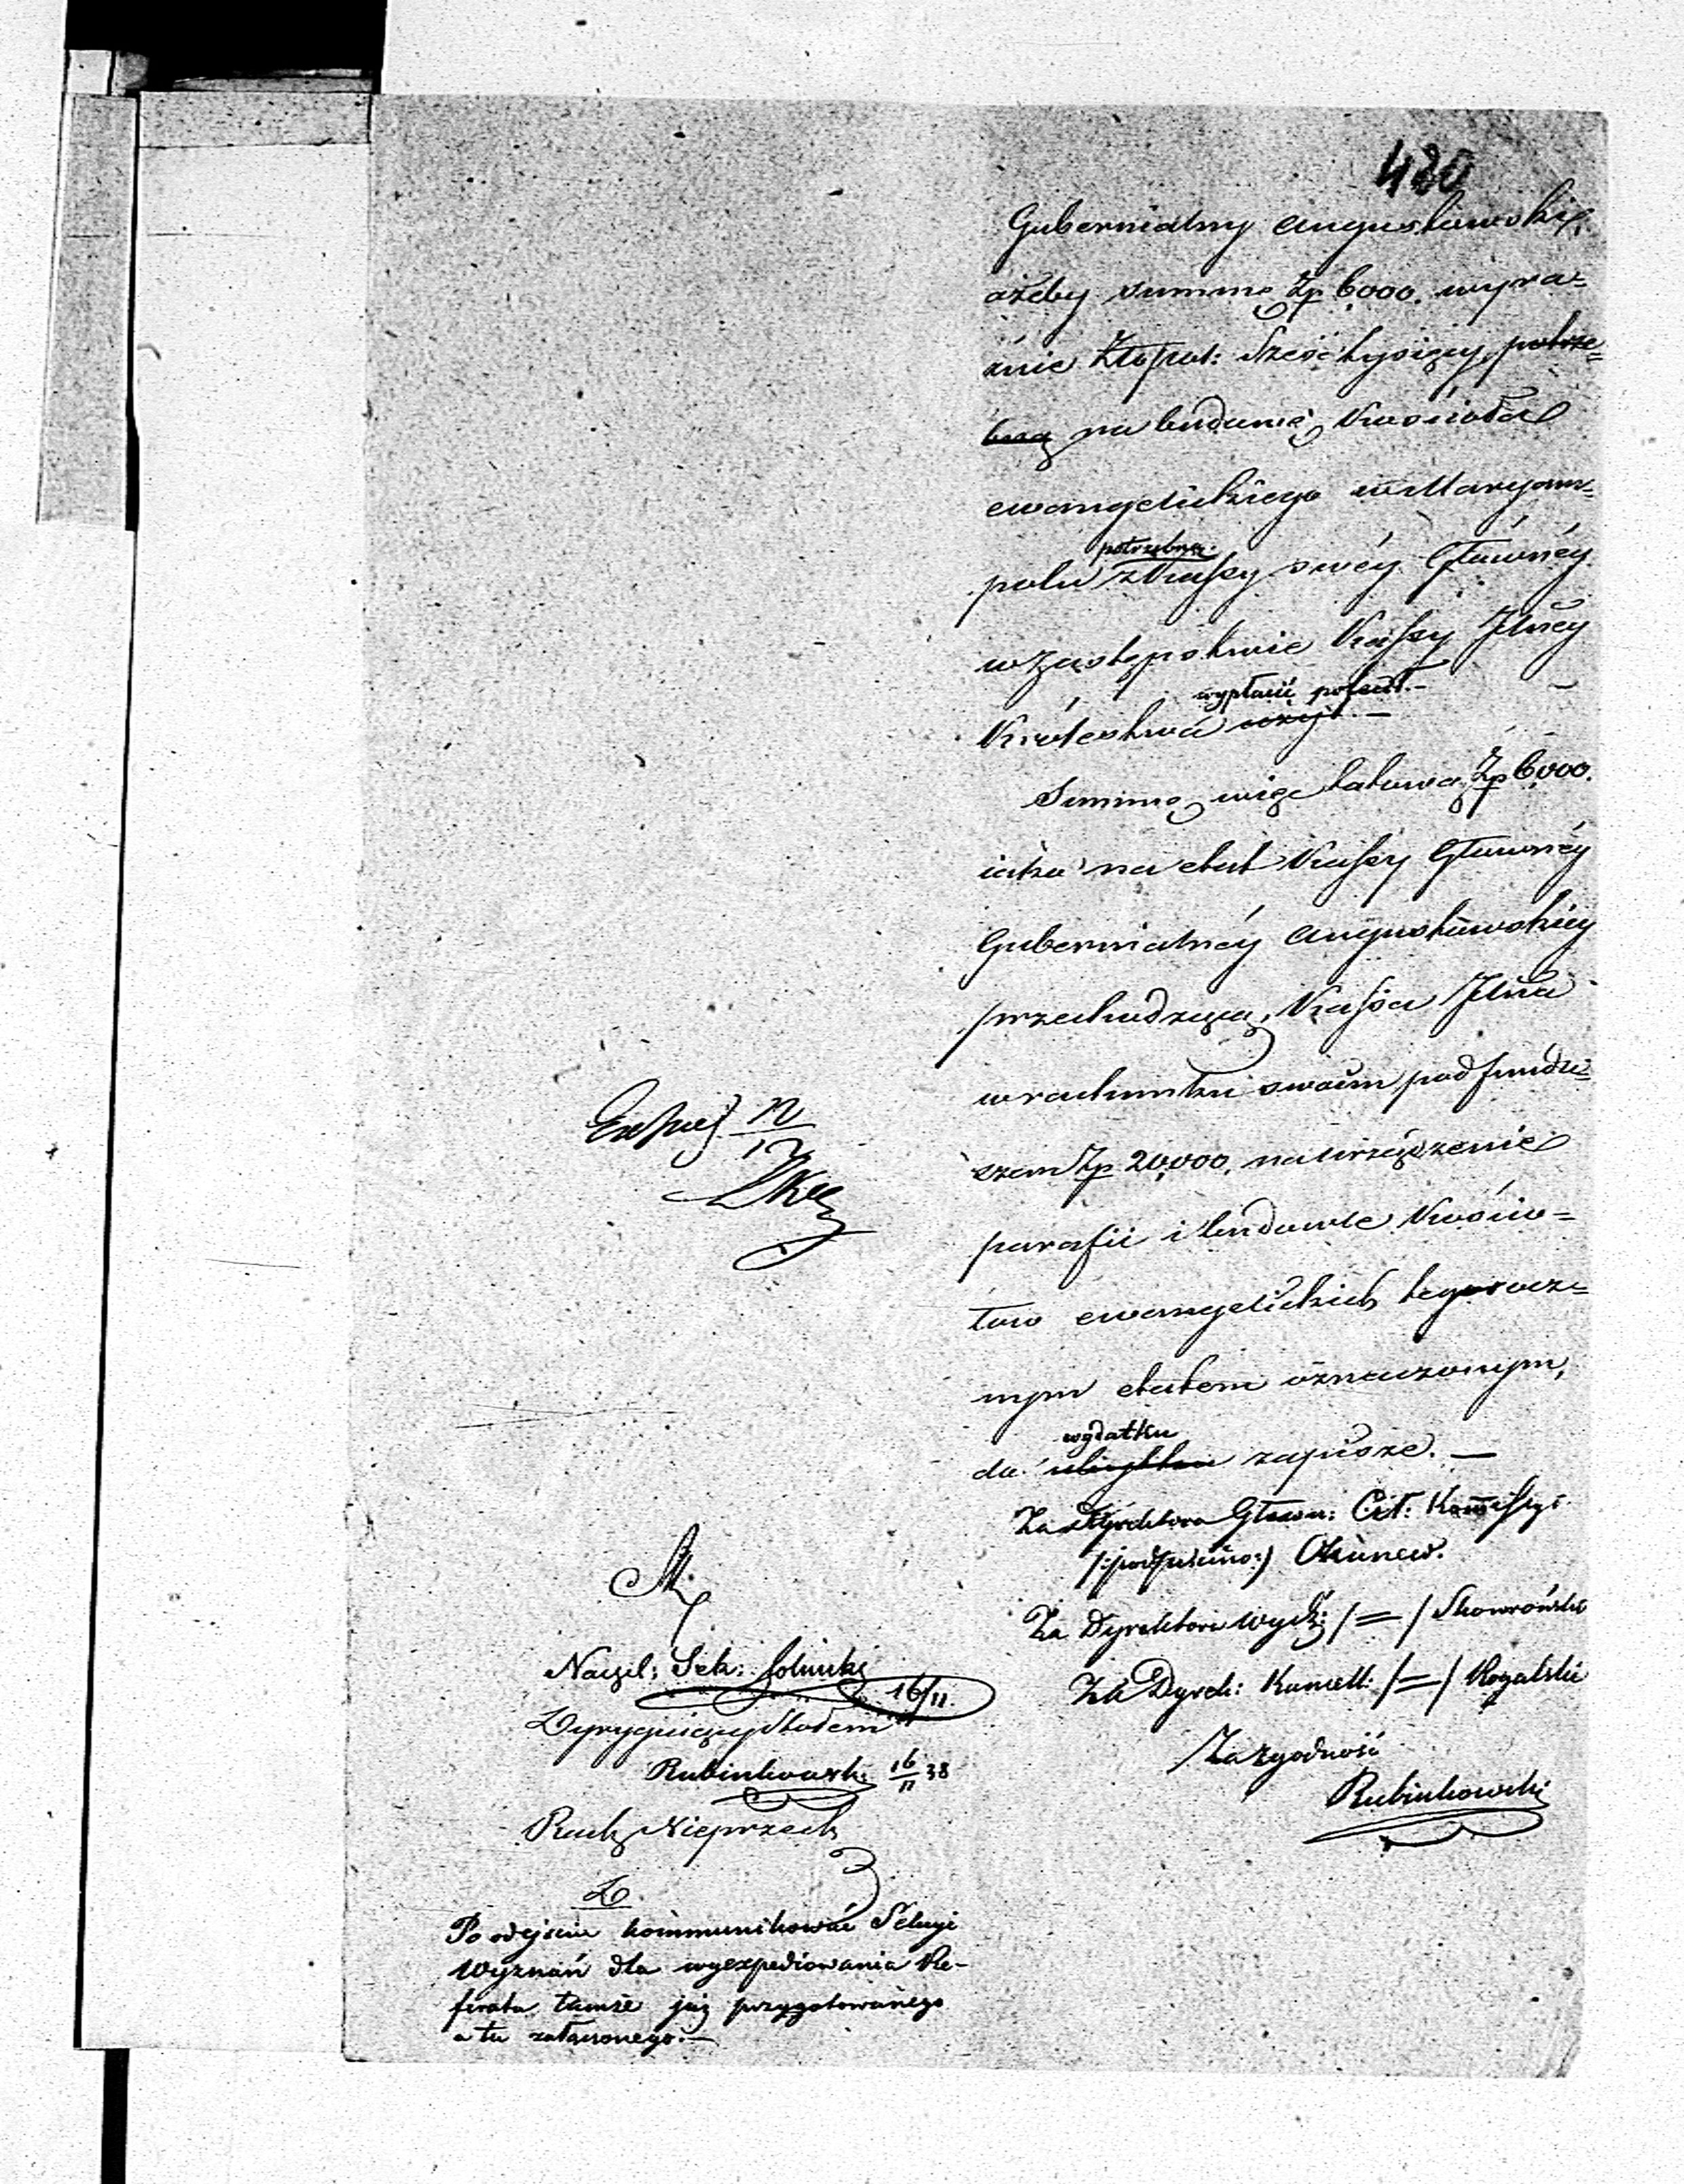 420
Gubernialny Augustowski,
ażeby summę Zp 6000. wyra=
źnie Złotpol: Sześć tysięcy, potrze=
bną na budowę Kościoła
ewangelickiego w Maryam=
potrzebną.
polu z Kassy swéy Główney
w zastępstwie Kassy Jlnéy
wypłacić polecił.—
Królestwa
Summę więc takową Zp 6000.
iako na etat Kassy Główney
Gubernialnéy Augustowskiey
przechodzącą, Kassa Jlna
w rachunku swoim pod fundu=
szem Zp 20,000. na urządzenie
parafii i budowle Kościo=
łów ewangelickich tegorocz=
nym etatem oznaczonym,
wydatku
do zapisze.—
Za Dyrektora Główn: Czł: Kommissyi
/:podpisano:/ Okunew.
Za Dyrektora Wydz: /=/ Skowroński
Za Dyrek: Kancell: /=/ Rogalski
Za zgodność
Rubinkowski
12
Naczel: Sek:
16/11.
Dyrygujący Stołem
Rubinkowski 16/11 38
Rach Nieprzech
D.
Po odejściu kommunikować Sekcyi
Wyznań dla wyexpedjowania Re-
ferata tamże już przygotowanego
a tu załączonego.—